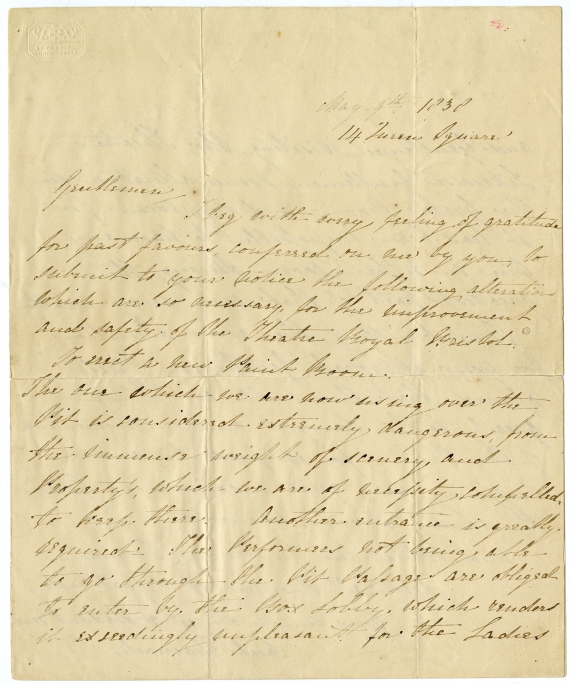 May 9th 1838
14 Queen Square
Gentlemen,
I beg with every feeling of gratitude
for past favours conferred on me by you to
submit to your notice the following alterations
which are so necessary for the improvement
and safety of the Theatre Royal Bristol.
To erect a new Paint Room.
The one which we are now using over the
Pit is considered extremely dangerous, from
the immense weight of scenery and
Property's, which we are of necessity compelled
to keep there. Another entrance is greatly
required. The Performers not being able
to go through the Pit Passage are obliged
to enter by the Box Lobby, which renders
it exceedingly unpleasant for the Ladies